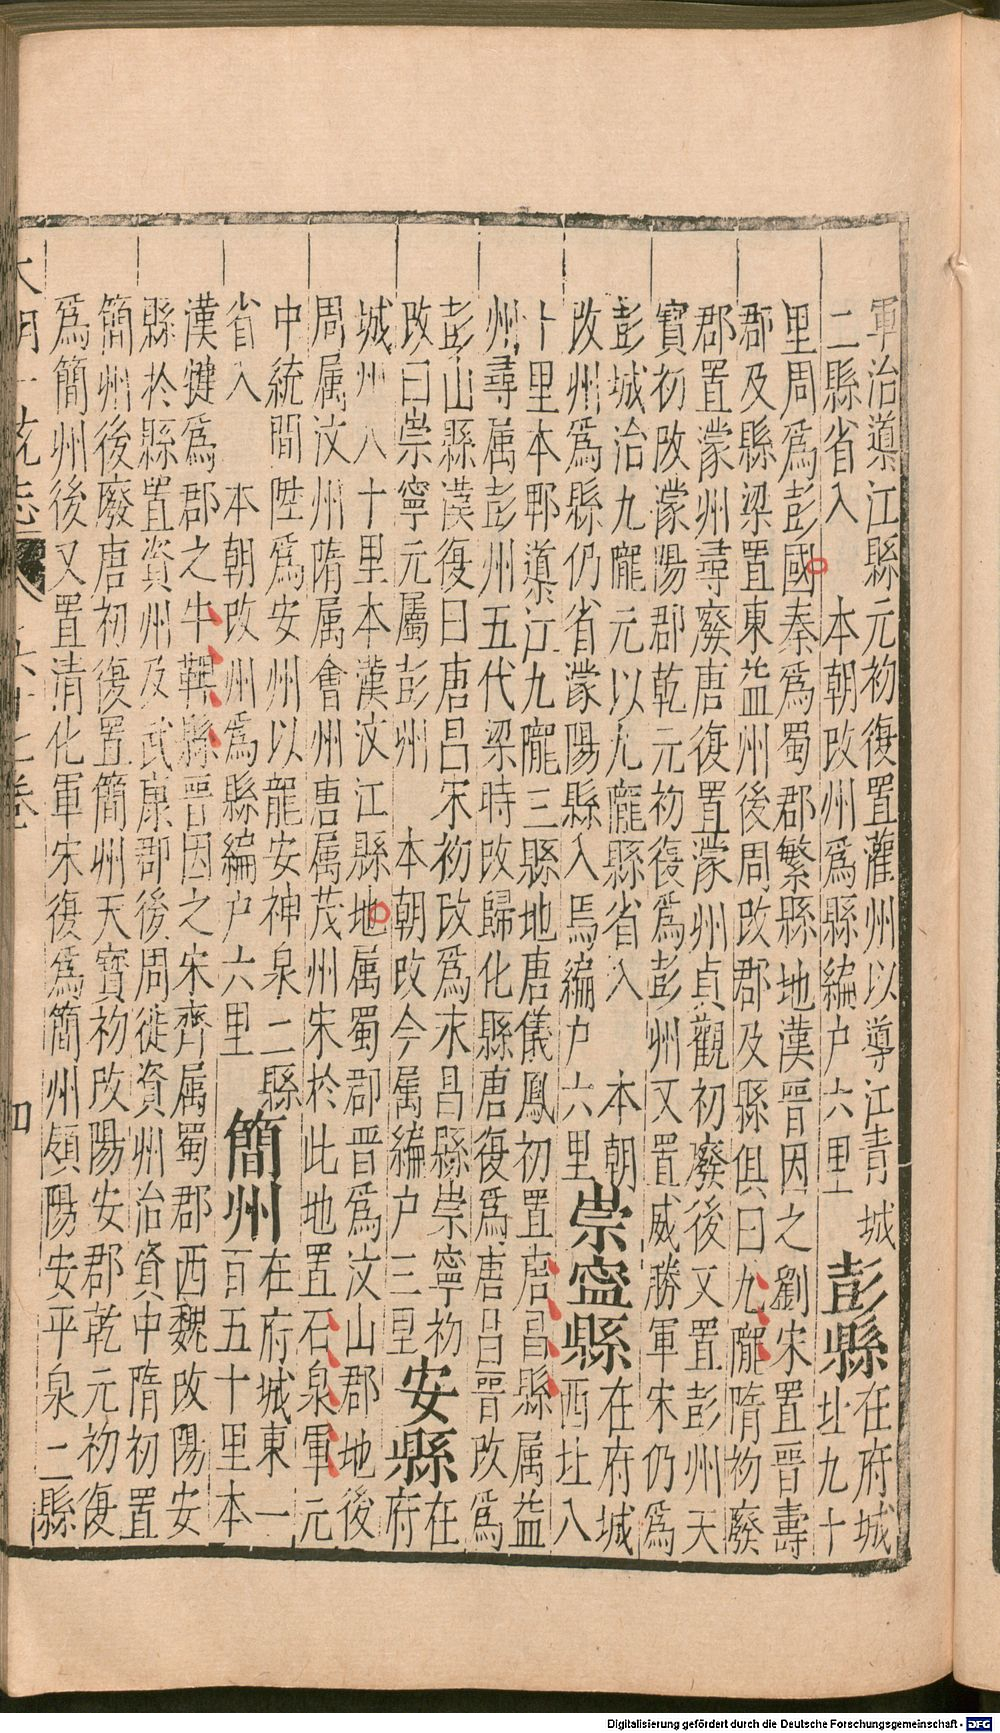 軍治導江縣元初復置灌州以導江青城
二縣省入　本朝改州爲縣編户六里
彭縣
在府城
北九十
里周爲彭國秦爲蜀郡繁縣地漢晉因之劉宋置晉壽
郡及縣梁置東益州後周改郡及縣俱曰九隴隋初廢
郡置濛州尋廢唐復置濛州貞觀初廢後又置彭州天
寳初改濛陽郡乾元初復爲彭州又置威勝軍宋仍爲
彭城治九隴元以九隴縣省入　本朝
改州爲縣仍省濛陽縣入焉編户六里
崇寧縣
在府城
西北八
十里本郫導江九隴三縣地唐儀鳳初置唐昌縣属益
州尋属彭州五代梁時改歸化縣唐復爲唐昌晉改爲
彭山縣漢復曰唐昌宋初改爲永昌縣崇寧初
改曰崇寧元屬彭州　本朝改今属編户三里
安縣
在
府
城州八十里本漢汶江縣地属蜀郡晉爲汶山郡地後
周属汶州隋属會州唐属茂州宋於此地置石泉軍元
中統間陞爲安州以龍安神泉二縣
省入　本朝改州爲縣編户六里
簡州
在府城東一
百五十里本
漢犍爲郡之牛鞞縣晉因之宋齊属蜀郡西魏改陽安
縣於縣置資州及武康郡後周徙資州治資中隋初置
簡州後廢唐初復置簡州天寳初改陽安郡乾元初復
爲簡州後又置清化軍宋復爲簡州領陽安平泉二縣
四
Digitalisierung gefördert durch die Deutsche Forschungsgemeinschaft - DFG